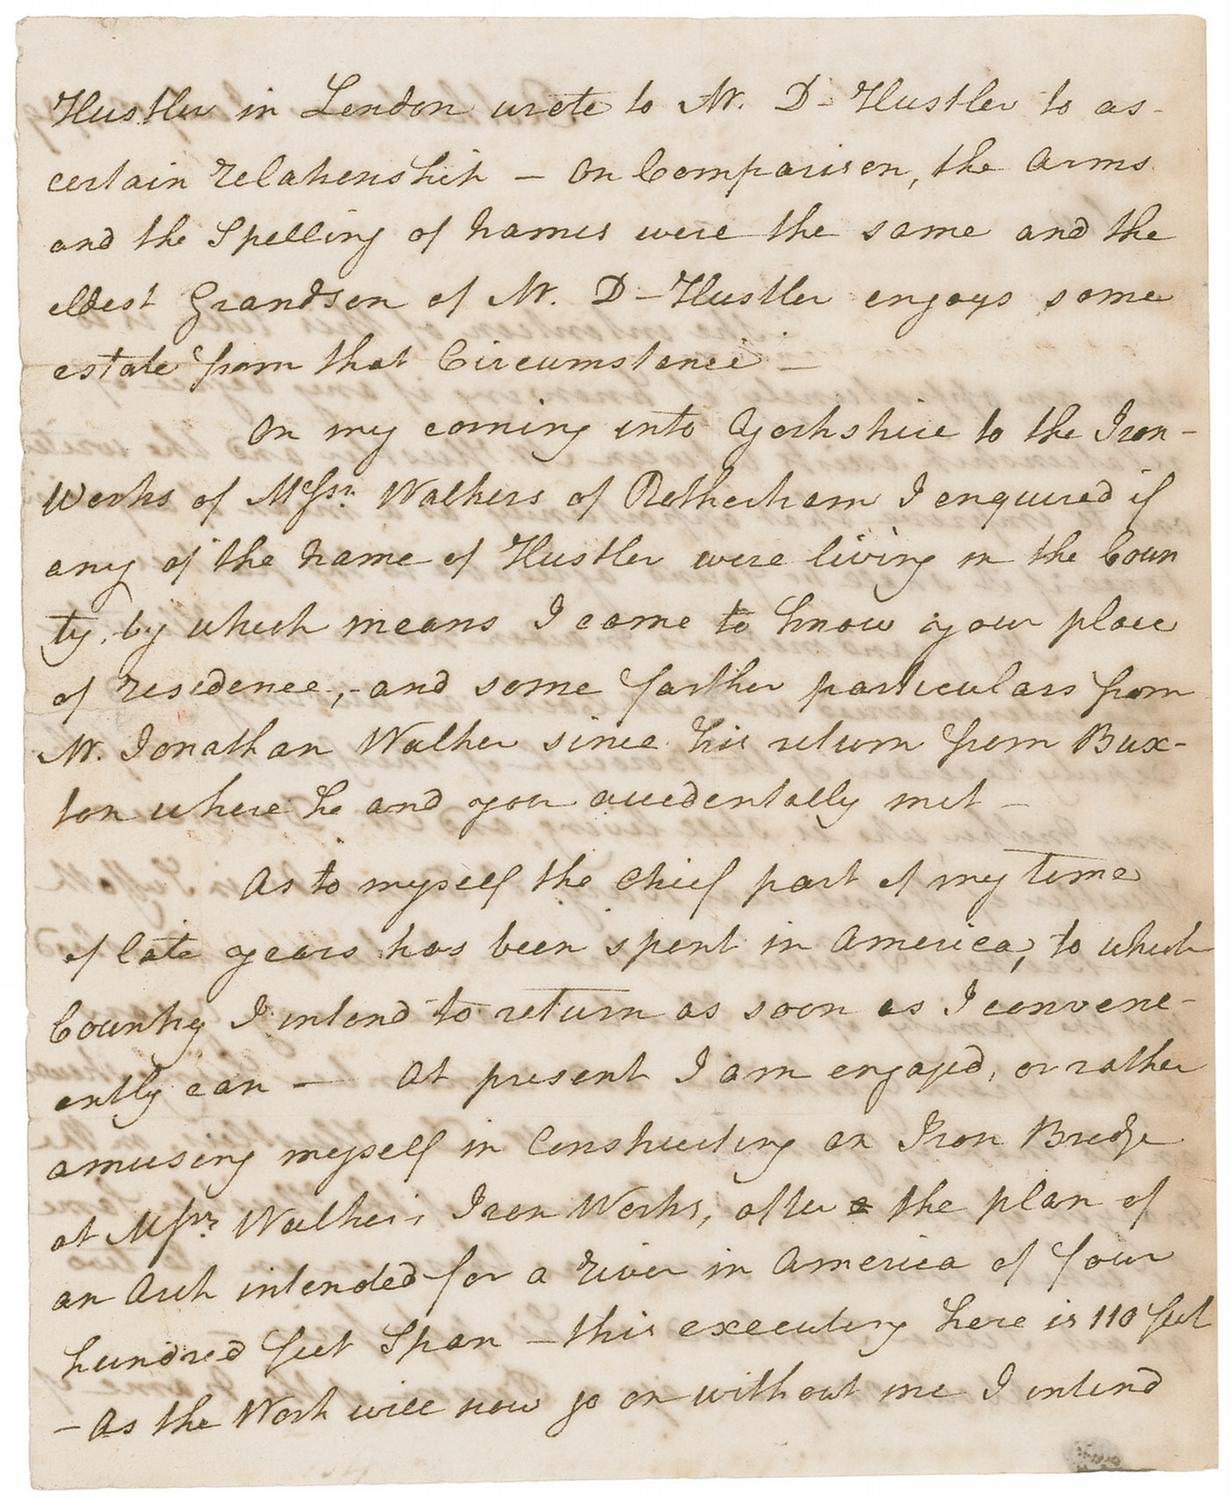 Hustler in London wrote to Mr. D-Hustler to as-
certain relationship — on Comparison, the Arms
and the Spelling of names were the same and the
eldest Grandson of Mr. D-Hustler enjoys some
estate from that Circumstance —
On my coming into Yorkshire to the Iron-
Works of Messrs. Walkers of Rotherham I enquired if
any of the name of Hustler were living in the Coun
ty, by which means I came to know your place
of residence, - and some farther particulars from
Mr. Jonathan Walker since his return from Bux-
ton where he and you accidentally met —
As to myself the chief part of my time
of late years has been spent in America, to which
Country I intend to return as soon as I conveni-
ently can — At present I am engaged, or rather
amusing myself in Constructing an Iron Bridge
at Messrs. Walker's Iron Works, after the plan of
an Arch intended for a River in America of four
hundred feet Span — this executing here is 110 feet
— As the Work will now go on without me I intend